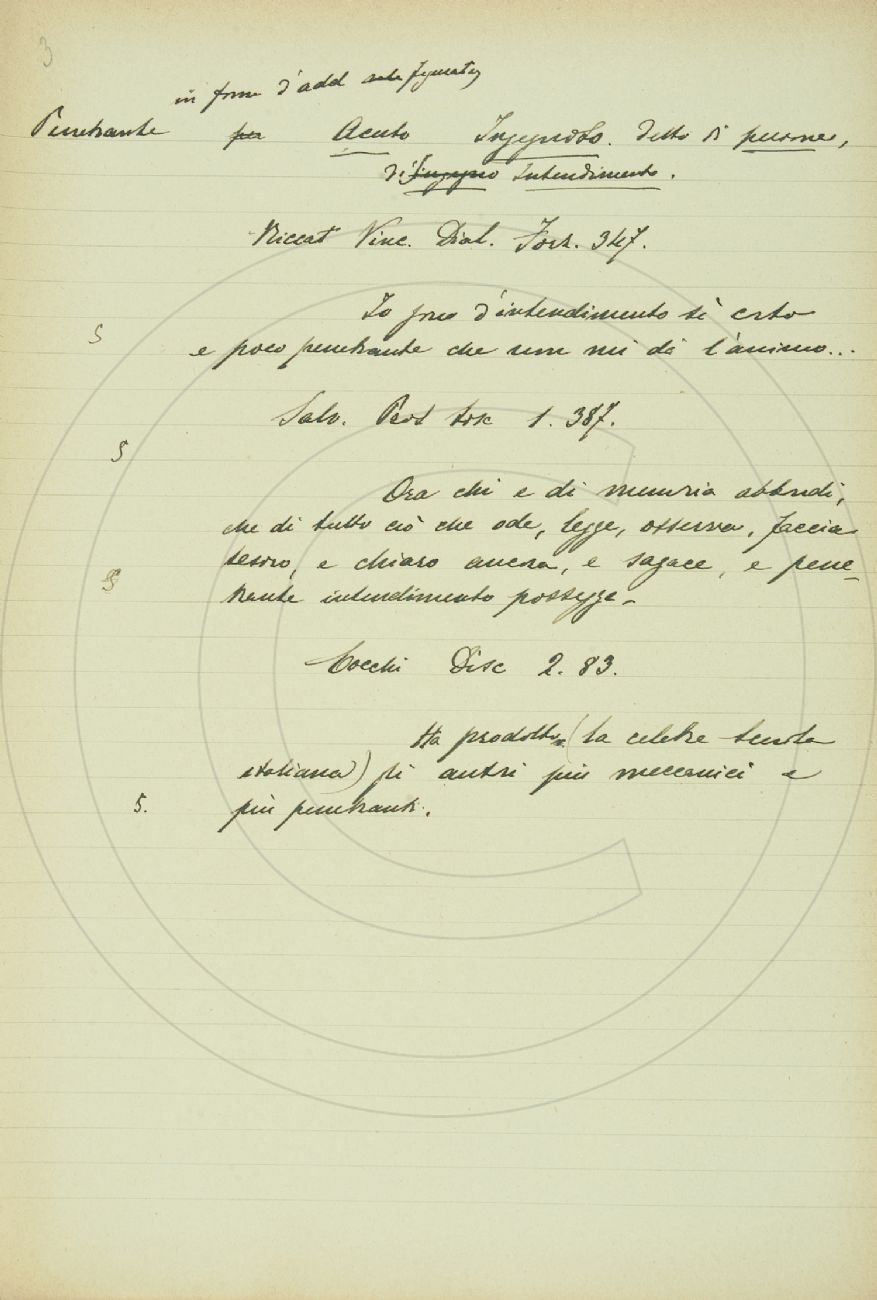 3
in forma d'add
Penetrante per Acuto Ingegnoso. detto di persone,
di Ingegno Intendimento.
Riccat Vinc. Dial. Forz. 347.
Io sono d'intendimento sì corto
5
e poco penetrante che non mi dà l'animo...
Salv. Pros tosc 1. 387.
5
Ora chi e di memoria abbondi,
che di tutto ciò che ode, legge, osserva, faccia
tesoro, e chiaro ancora, e sagace, e pene-
5
trante intendimento possegga-
Cocchi Disc 2. 83.
Ha prodotto (la celebre scuola
italiana) gli autori più meccanici e
5.
più penetranti.